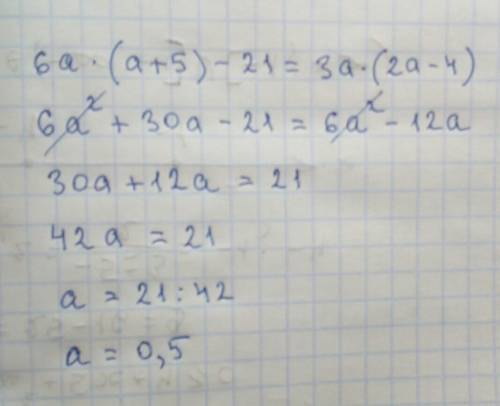 6a · (a+5) - 21 = 3a · (2a - 4)
6a² + 30a - 21 = 6a² - 12a
30a + 12a = 21
42a = 21
a = 21 : 42
a = 0,5